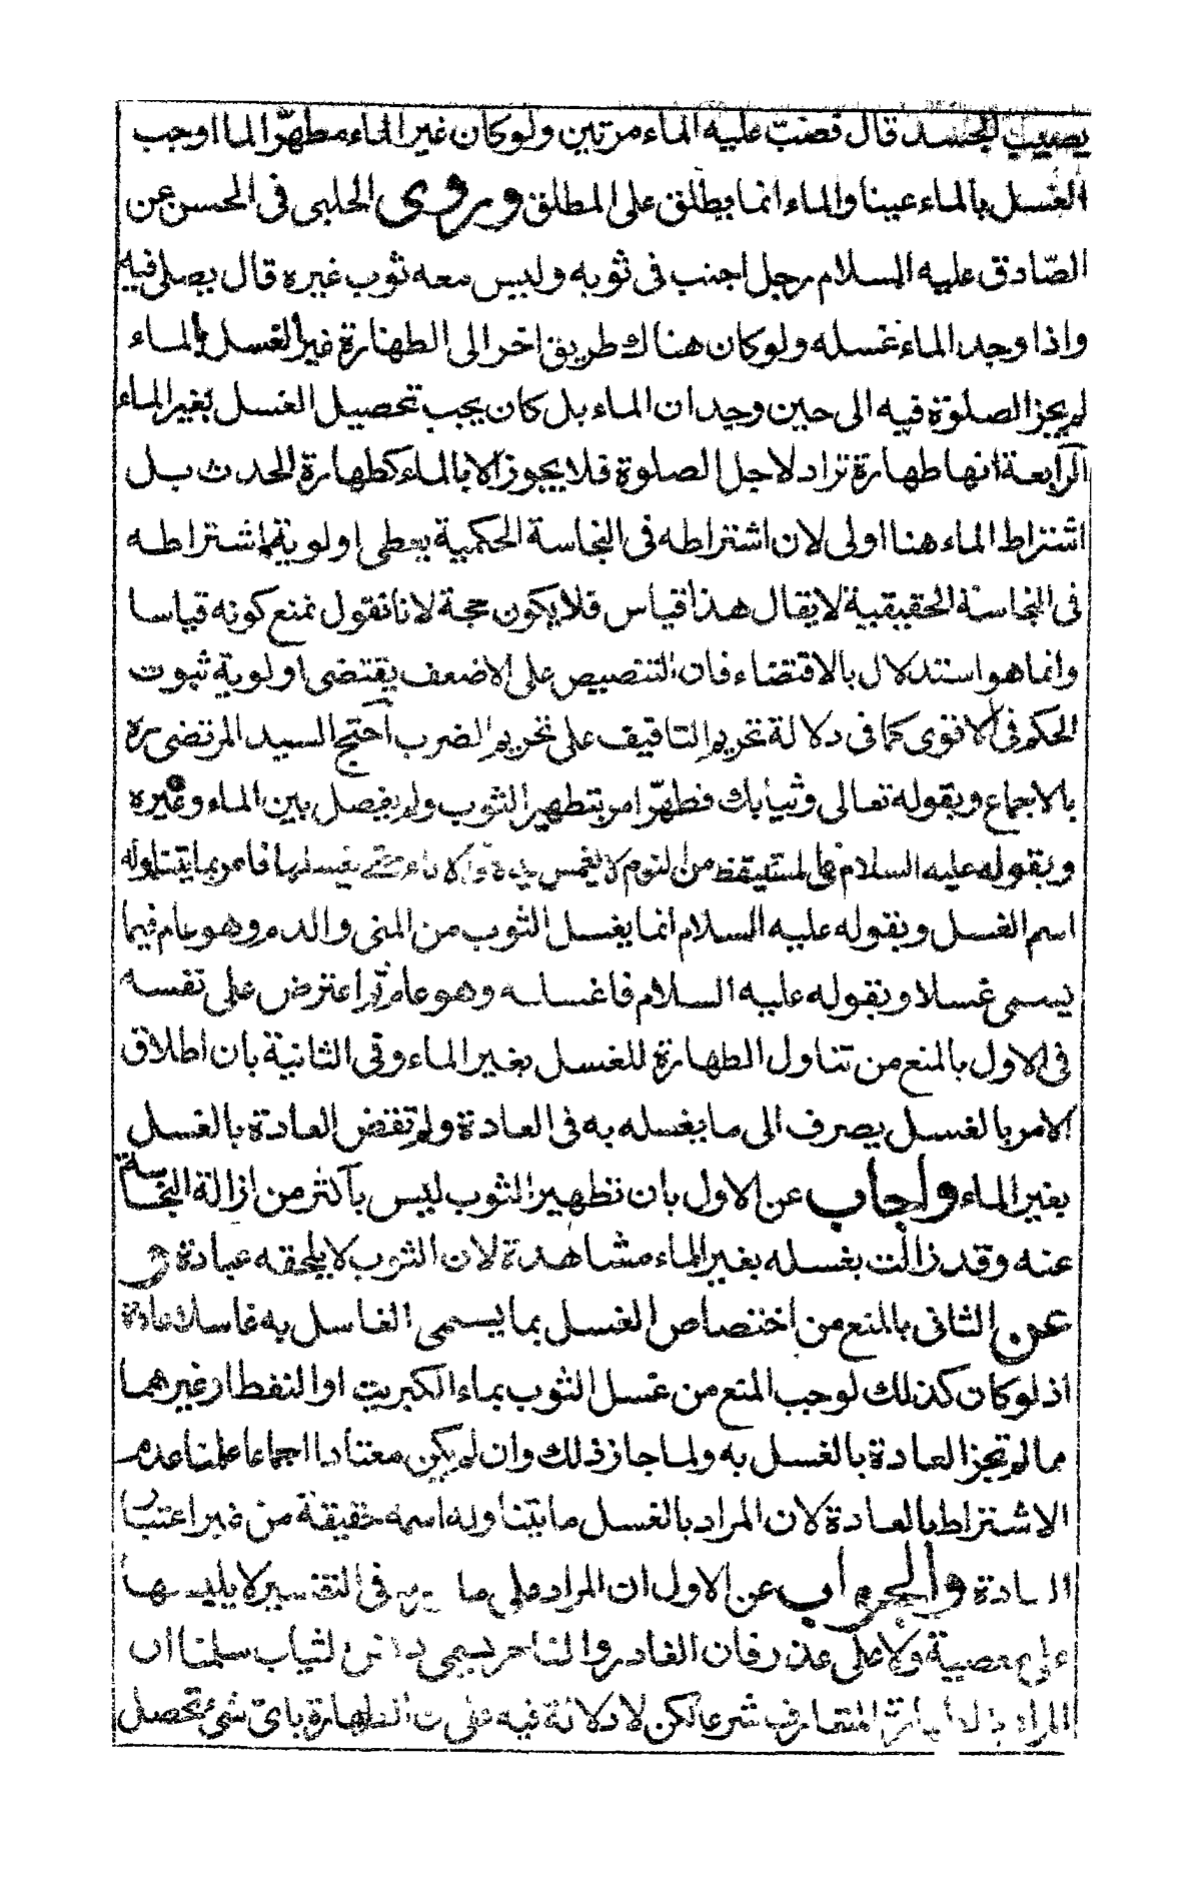 يصيب الجسد قال فصبّ عليه الماء مرتين ولو كان غير الماء مطهّرا لما اوجب
الغسل بالماء عينا والماء انما يطلق على المطلق وروى الحلبى فى الحسن عن
الصّادق عليه السلام رجل اجنب فى ثوبه وليس معه ثوب غيره قال يصلى فيه
واذا وجد الماء غسله ولو كان هناك طريق اخر الى الطهارة غير الغسل بالماء
لم يجز الصلوة فيه الى حين وجدان الماء بل كان يجب تحصيل الغسل بغير الماء
الرابعة انها طهارة تراد لاجل الصلوة فلا يجوز الا بالماء كطهارة الحدث بل
اشتراط الماء هنا اولى لان اشتراطه فى النجاسة الحكمية يعطى اولوية اشتراطه
فى النجاسة الحقيقية لا يقال هذا قياس فلا يكون حجة لانا نقول نمنع كونه قياسا
وانما هو استدلال بالاقتضاء فان التنصيص على الاضعف يقتضى اولوية ثبوت
الحكم فى الاقوى كما فى دلالة تحريم التافيف على تحريم الضرب احتج السيد المرتضى ره
بالاجماع وبقوله تعالى وثيابك فطهّر امر بتطهير الثوب ولم يفصل بين الماء وغيره
وبقوله عليه السلام فى المستيقظ من النوم لا يغمس يده فى الاناء حتى يغسلها فامر بما يتناوله
اسم الغسل وبقوله عليه السلام انما يغسل الثوب من المنى والدم وهو عام فيما
يسمى غسلا وبقوله عليه السلام فاغسله وهو عام ثمّ اعترض على نفسه
فى الاول بالمنع من تناول الطهارة للغسل بغير الماء وفى الثانية بان اطلاق
الامر بالغسل يصرف الى ما يغسله به فى العادة ولم تقض العادة بالغسل
بغير الماء واجاب عن الاول بان تطهير الثوب ليس بأكثر من ازالة النجاسة
عنه وقد زالت بغسله بغير الماء مشاهدة لان الثوب لا يلحقه عبادة و
عن الثانى بالمنع من اختصاص الغسل بما يسمى الغاسل به غاسلا عادة
اذ لو كان كذلك لوجب المنع من غسل الثوب بماء الكبريت او النفط او غيرهما
مما لم تجز العادة بالغسل به ولما جاز ذلك وان لم يكن معتادا اجماعا علمنا عدم
الاشتراط بالعادة لان المراد بالغسل ما يتناوله اسمه حقيقة من غير اعتبار
العادة والجواب عن الاول ان المراد على ما فى التفسير لا يلبسها
على معصية ولا على غدر فان الغادر والفاجر يسمى دنس الثياب سلمنا ان
المراد المتعارف شرعا لكن لا دلالة فيه على ان الطهارة باى شئ تحصل